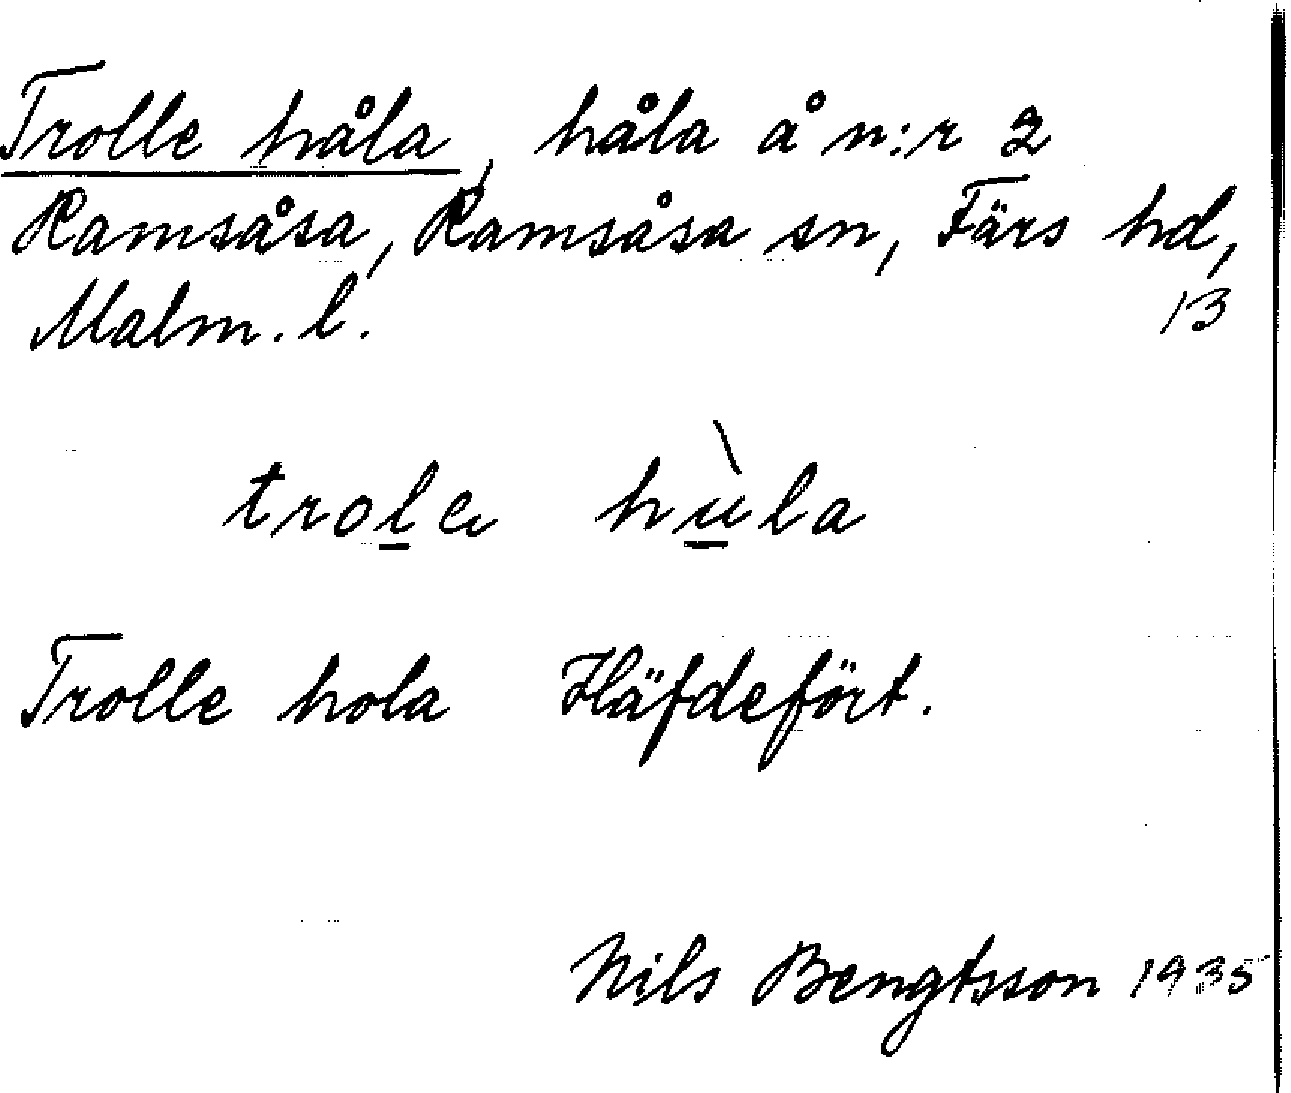 Trolle håla, håla å n:r 2
Ramsåsa, Ramsåsa sn, Färs hd,
Malm. l. 13
trola hùla
Trolle hola Häfdefört.
Nils Bengtsson 1935